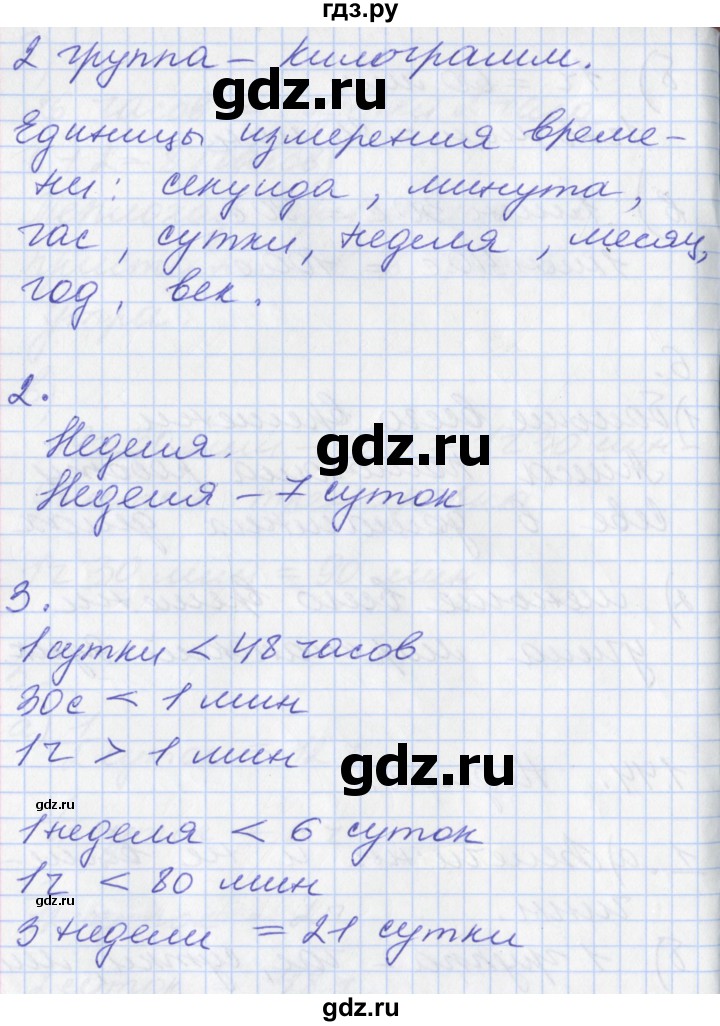 гдз.ру
2 группа – килограмм.
gdz.ru
Единицы измерения време-
ни: секунда, минута,
час, сутки, неделя, месяц,
год, век.
2.
Неделя.
gdz.ru
Неделя – 7 суток
3.
1 сутки < 48 часов
30с < 1 мин
1ч > 1 мин
gdz.ru
gdz.ru
1 неделя < 6 суток
1ч < 80 мин
gdz.ru
3 недели = 21 сутки
gdz.ru